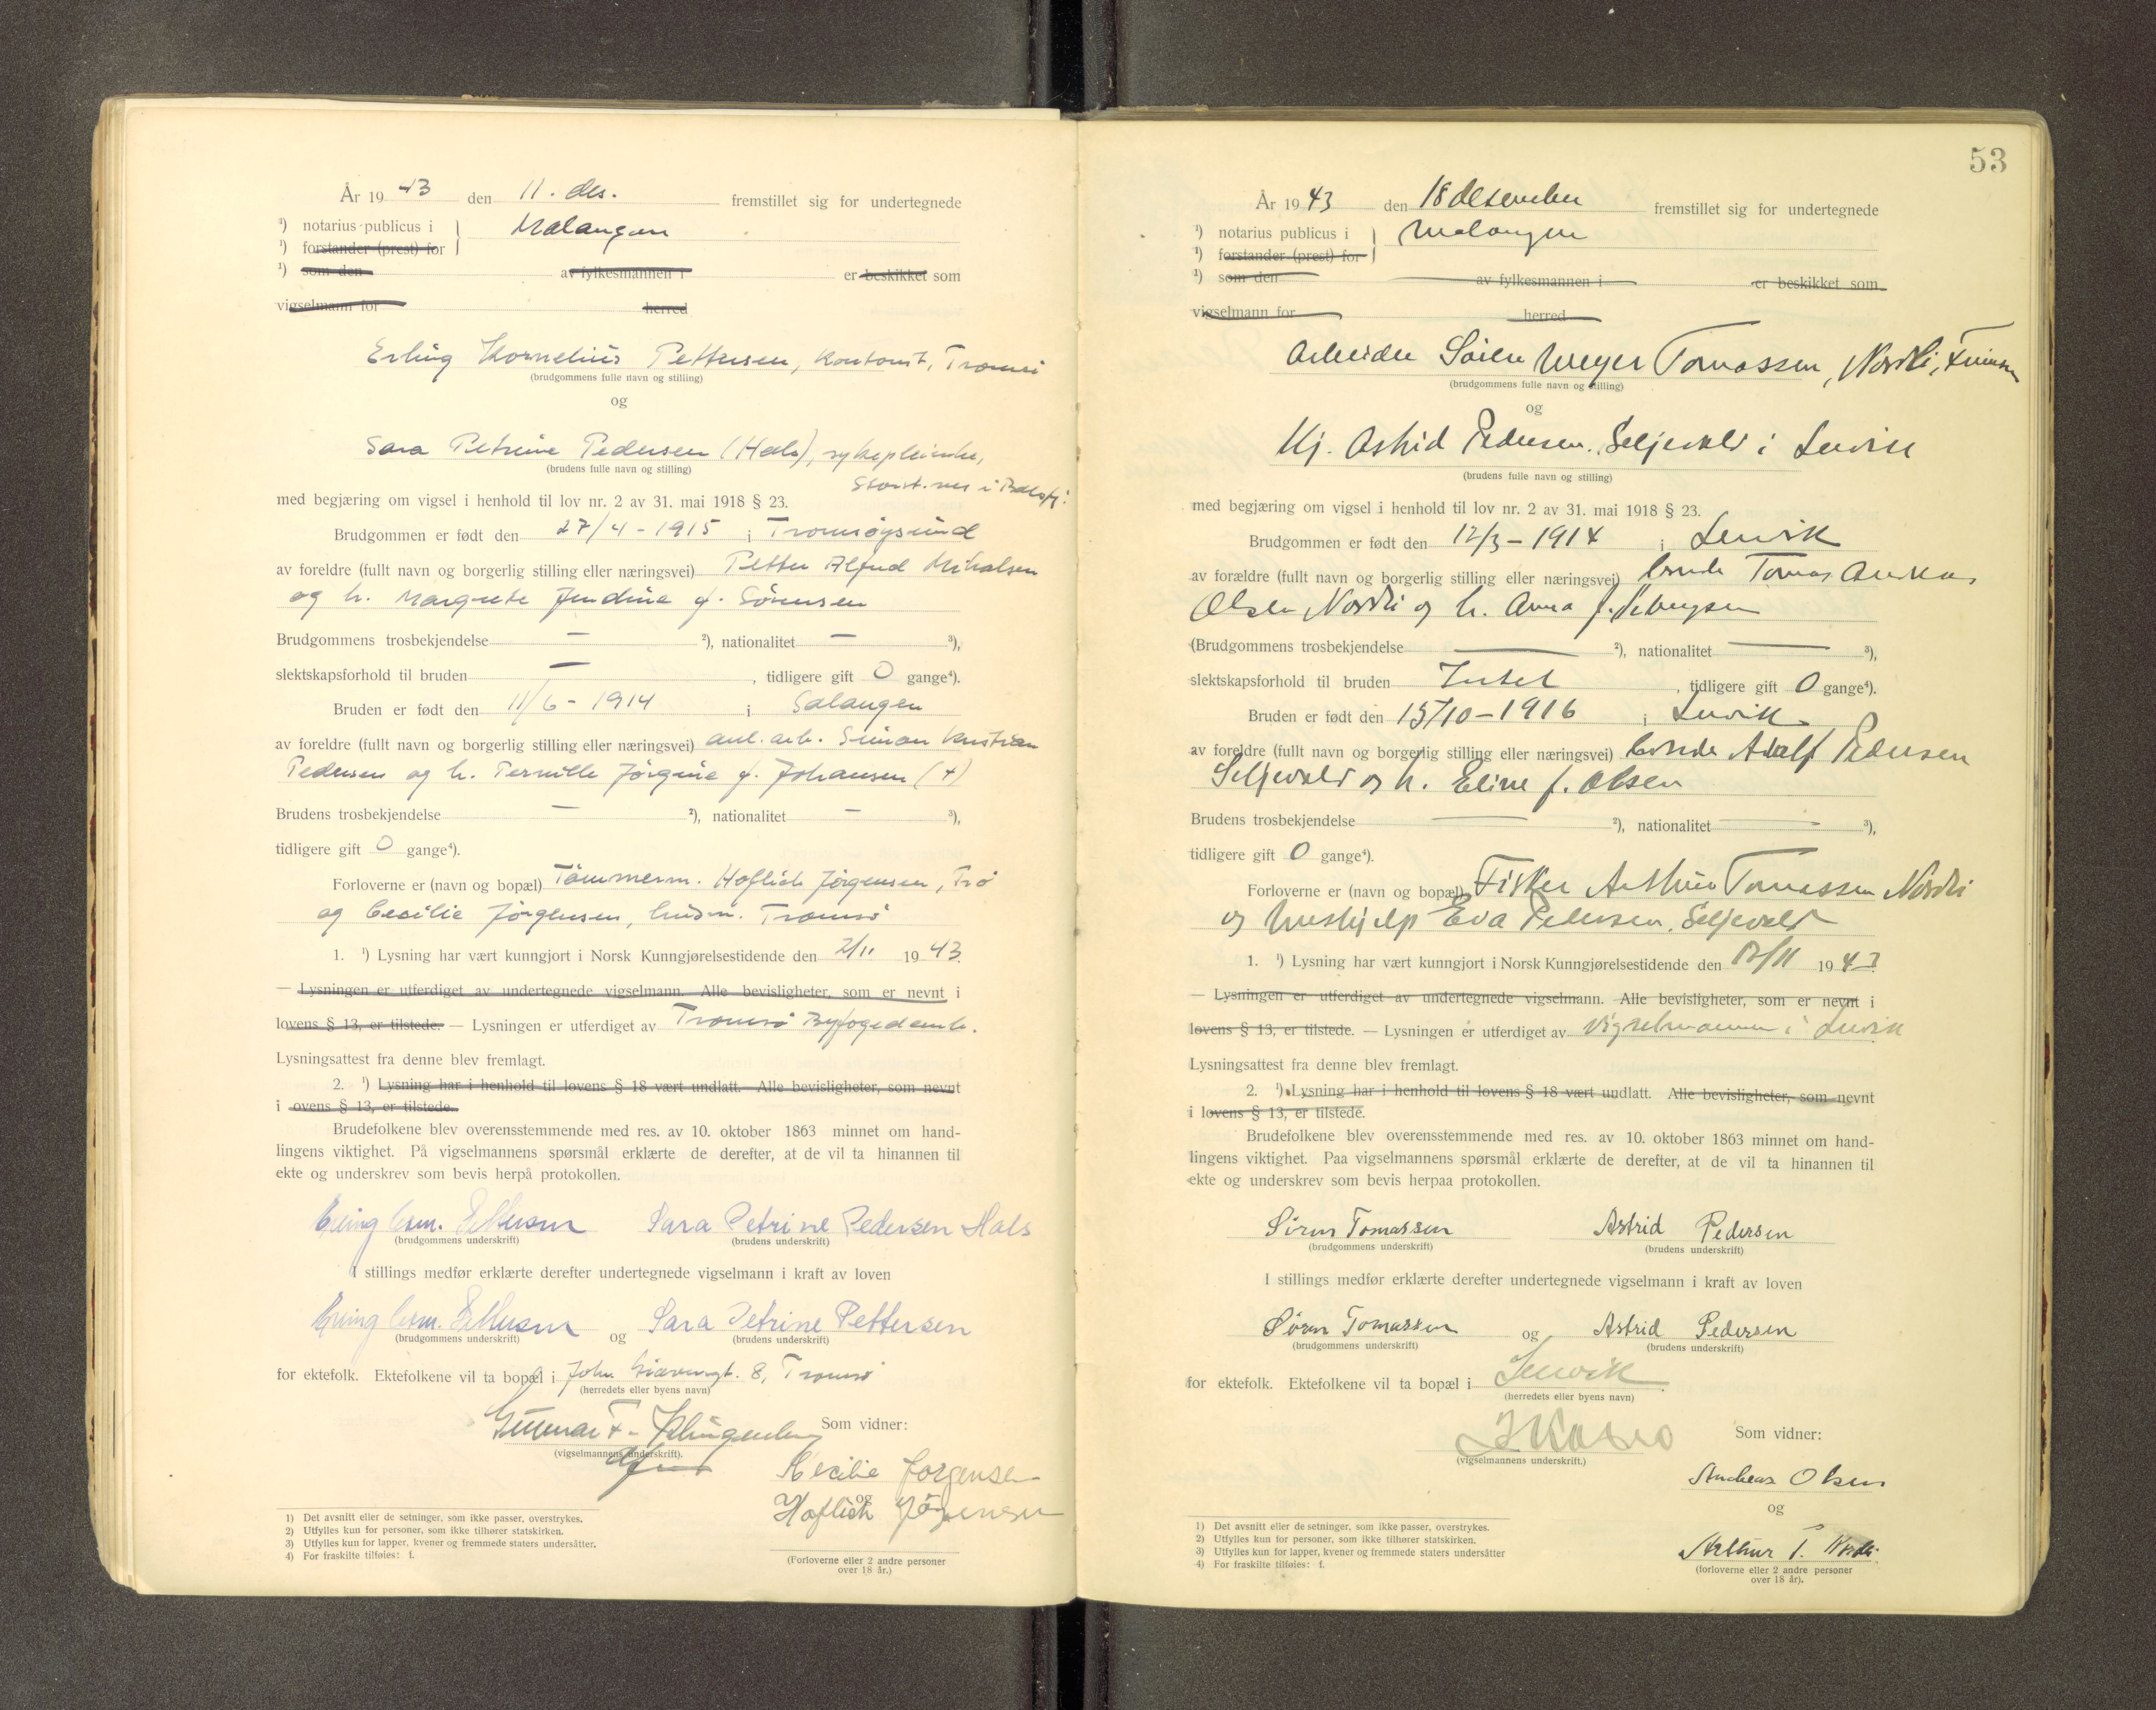 År 1943 den 11. des. fremstillet sig for undertegnede
¹) notarius publicus i Malangen
¹) forstander (prest) for
¹) som den av fylkesmannen i er beskikket som
vigselmann for herred
Erling Kornelius Pettersen, kontorist, Tromsø
(brudgommens fulle navn og stilling)
og
Sara Petrine Pedersen (Hals), sykepleierske,
(brudens fulle navn og stilling)
med begjæring om vigsel i henhold til lov nr. 2 av 31. mai 1918 § 23.
Brudgommen er født den 27/4 - 1915 i Tromsøysund
av foreldre (fullt navn og borgerlig stilling eller næringsvei) Petter Alfred Mikalsen
og h. Margrete Jendine f. Sörensen
Brudgommens trosbekjendelse — ²), nationalitet — ³),
slektskapsforhold til bruden — , tidligere gift 0 gange⁴).
Bruden er født den 11/6 - 1914 i Salangen
av foreldre (fullt navn og borgerlig stilling eller næringsvei) anl. arb. Simon Kristian
Pedersen og h. Pernille Jörgine f. Johansen (+)
Brudens trosbekjendelse — ²), nationalitet — ³),
tidligere gift 0 gange⁴).
Forloverne er (navn og bopæl) Tömmerm. Hoflich Jörgensen, Trø
og Cecilie Jörgensen, husm. Tromsø
1. ¹) Lysning har vært kunngjort i Norsk Kunngjørelsestidende den 2/11 1943
— Lysningen er utferdiget av undertegnede vigselmann. Alle bevisligheter, som er nevnt i
lovens § 13, er tilstede. — Lysningen er utferdiget av Tromsø Byfogedemb.
Lysningsattest fra denne blev fremlagt.
2. ¹) Lysning har i henhold til lovens § 18 vært undlatt. Alle bevisligheter, som nevnt
i ovens § 13, er tilstede.
Brudefolkene blev overensstemmende med res. av 10. oktober 1863 minnet om hand-
lingens viktighet. På vigselmannens spørsmål erklærte de derefter, at de vil ta hinannen til
ekte og underskrev som bevis herpå protokollen.
Erling Corn. Pettersen Sara Petrine Pedersen Hals
(brudgommens underskrift) (brudens underskrift)
I stillings medfør erklærte derefter undertegnede vigselmann i kraft av loven
Erling Corn. Pettersen og Sara Petrine Pettersen
(brudgommens underskrift) (brudens underskrift)
for ektefolk. Ektefolkene vil ta bopæl i Joh. 8, Tromsø
(herredets eller byens navn)
Gunnar F. Klingenberg Som vidner:
(vigselmannens underskrift).
Cecilie Jorgensen
og
Hoflich Jörgensen
(Forloverne eller 2 andre personer
over 18 år.)
1) Det avsnitt eller de setninger, som ikke passer, overstrykes.
2) Utfylles kun for personer, som ikke tilhører statskirken.
3) Utfylles kun for lapper, kvener og fremmede staters undersåtter.
4) For fraskilte tilføies: f.
53
År 1943 den 18 desember fremstillet sig for undertegnede
¹) notarius publicus i Malangen
¹) forstander (prest) for
¹) som den av fylkesmannen i er beskikket som
vigselmann for herred
Arbeider Sören Meyer Tomassen, Nordli,
(brudgommens fulle navn og stilling)
og
Hj. Astrid Pedersen. Seljevold i Lenvik
(brudens fulle navn og stilling)
med begjæring om vigsel i henhold til lov nr. 2 av 31. mai 1918 § 23.
Brudgommen er født den 12/3 - 1914 i Lenvik
av forældre (fullt navn og borgerlig stilling eller næringsvei) bonde Tomas Andreas
Olsen Nordli og h. Anna f.
(Brudgommens trosbekjendelse — ²), nationalitet — ³),
slektskapsforhold til bruden Intet , tidligere gift 0 gange⁴).
Bruden er født den 15/10 - 1916 i Lenvik
av foreldre (fullt navn og borgerlig stilling eller næringsvei) bonde Adolf Pedersen
Seljevold og h. Eline f. Olsen
Brudens trosbekjendelse — ²), nationalitet — ³),
tidligere gift 0 gange⁴).
Forloverne er (navn og bopæl) Fisker Arthur Tomassen Nordli
og hushjelp Eva Pedersen, Seljevold
1. ¹) Lysning har vært kunngjort i Norsk Kunngjørelsestidende den /11 1943
— Lysningen er utferdiget av undertegnede vigselmann. Alle bevisligheter, som er nevnt i
lovens § 13, er tilstede. — Lysningen er utferdiget av vigselmannen i Lenvik
Lysningsattest fra denne blev fremlagt.
2. ¹) Lysning har i henhold til lovens § 18 vært undlatt. Alle bevisligheter, som nevnt
i lovens § 13, er tilstede.
Brudefolkene blev overensstemmende med res. av 10. oktober 1863 minnet om hand-
lingens viktighet. Paa vigselmannens spørsmål erklærte de derefter, at de vil ta hinannen til
ekte og underskrev som bevis herpaa protokollen.
Sören Tomassen Astrid Pedersen
(brudgommens underskrift) (brudens underskrift)
I stillings medfør erklærte derefter undertegnede vigselmann i kraft av loven
Sören Tomassen og Astrid Pedersen
(brudgommens underskrift) (brudens underskrift)
for ektefolk. Ektefolkene vil ta bopæl i Lenvik
(herredets eller byens navn)
Som vidner:
(vigselmannens underskrift.)
Andreas Olsen
og
Arthur T. Nordli
(forloverne eller 2 andre personer
over 18 år).
1) Det avsnitt eller de setninger, som ikke passer, overstrykes.
2) Utfylles kun for personer, som ikke tilhører statskirken.
3) Utfylles kun for lapper, kvener og fremmede staters undersåtter
4) For fraskilte tilføies: f.